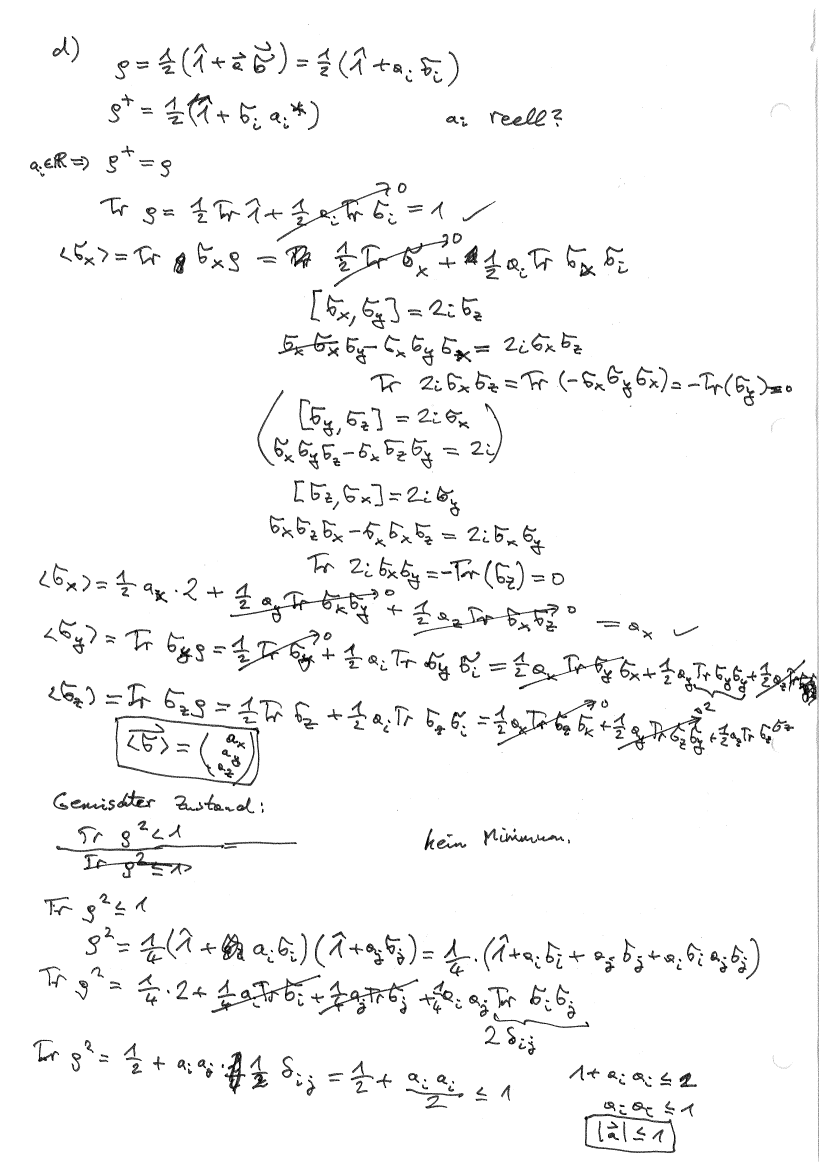 d) ρ = 1/2 (1̂ + a⃗ σ⃗) = 1/2 (1̂ + aᵢ σᵢ)
ρ⁺ = 1/2 (1̂ + σᵢ aᵢ*) aᵢ reell?
aᵢ∈ℝ ⇒ ρ⁺ = ρ
Tr ρ = 1/2 Tr 1̂ + 1/2 aᵢ Tr σᵢ →0 = 1 ✓
<σₓ> = Tr σₓρ = 1/2 Tr σₓ →0 + 1/2 aᵢ Tr σₓ σᵢ
[σₓ, σ_y] = 2i σ_z
σₓ σₓ σ_y − σₓ σ_y σₓ = 2i σₓ σ_z
Tr 2i σₓ σ_z = Tr (−σₓ σ_y σₓ) = −Tr(σ_y) = 0
([σ_y, σ_z] = 2i σₓ
σₓ σ_y σ_z − σₓ σ_z σ_y = 2i)
[σ_z, σₓ] = 2i σ_y
σₓ σ_z σₓ − σₓ σₓ σ_z = 2i σₓ σ_y
Tr 2i σₓ σ_y = −Tr(σ_z) = 0
<σₓ> = 1/2 aₓ · 2 + 1/2 a_y Tr σₓ σ_y →0 + 1/2 a_z Tr σₓ σ_z →0 = aₓ ✓
<σ_y> = Tr σ_y ρ = 1/2 Tr σ_y →0 + 1/2 aᵢ Tr σ_y σᵢ = 1/2 aₓ Tr σ_y σₓ + 1/2 a_y Tr σ_y σ_y + 1/2 a_z Tr
2
<σ_z> = Tr σ_z ρ = 1/2 Tr σ_z + 1/2 aᵢ Tr σ_z σᵢ = 1/2 aₓ Tr σ_z σₓ →0 + 1/2 a_y Tr σ_z σ_y →0 + 1/2 a_z Tr σ_z σ_z
<σ⃗> = (aₓ a_y a_z)
Gemischter Zustand:
Tr ρ² < 1 kein Minimum.
Tr ρ² ≤ 1
Tr ρ² ≤ 1
ρ² = 1/4 (1̂ + aᵢ σᵢ)(1̂ + aⱼ σⱼ) = 1/4 · (1̂ + aᵢ σᵢ + aⱼ σⱼ + aᵢ σᵢ aⱼ σⱼ)
Tr ρ² = 1/4 · 2 + 1/4 aᵢ Tr σᵢ + 1/4 aⱼ Tr σⱼ + 1/4 aᵢ aⱼ Tr σᵢ σⱼ
2 δᵢⱼ
Tr ρ² = 1/2 + aᵢ aⱼ · 1/2 δᵢⱼ = 1/2 + aᵢ aᵢ / 2 ≤ 1
1 + aᵢ aᵢ ≤ 2
aᵢ aᵢ ≤ 1
|a⃗| ≤ 1